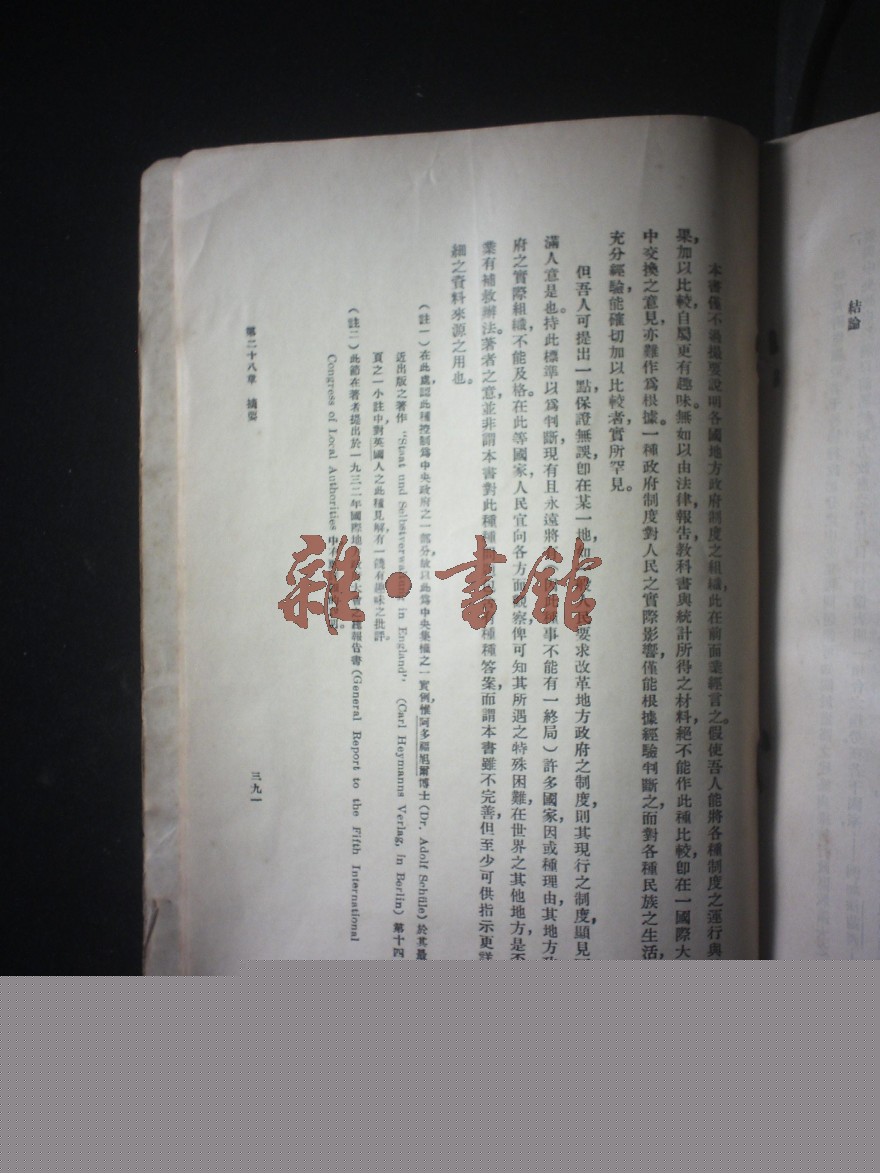 結論
本書僅不過撮要說明各國地方政府制度之組織，此在前面業經言之。假使吾人能將各種制度之運行與
果，加以比較，自屬更有趣味。無如以由法律，報告，教科書與統計所得之材料，絕不能作此種比較，卽在一國際大
中交換之意見，亦難作爲根據。一種政府制度對人民之實際影響，僅能根據經驗判斷之，而對各種民族之生活，
充分經驗，能確切加以比較者，實所罕見。
但吾人可提出一點，保證無誤，卽在某一地，如 人民要求改革地方政府之制度，則其現行之制度，顯見
滿人意是也。持此標準以爲判斷，現有且永遠將有 此種事不能有一終局）許多國家，因或種理由，其地方政
府之實際組織，不能及格。在此等國家，人民宜向各方面觀察，俾可知其所遇之特殊困難，在世界之其他地方，是否
業有補救辦法。著者之意，並非謂本書對此種種 種種答案，而謂本書雖不完善，但至少可供指示更詳
細之資料來源之用也。
（註一）在此處，認此種控制爲中央政府之一部分，故以此爲中央集權之一實例，惟阿多福旭爾博士（Dr. Adolf Schüle）於其最
近出版之著作 "Staat und Selbstverwaltung in England"（Carl Heymanns Verlag, in Berlin）第十四
頁之一小註中，對英國人之此種見解，有一饒有趣味之批評。
（註二）此節在著者提出於一九三二年國際地方 大會之總報告書（General Report to the Fifth International
Congress of Local Authorities 中
第二十八章 摘要
三九一
雜·書館